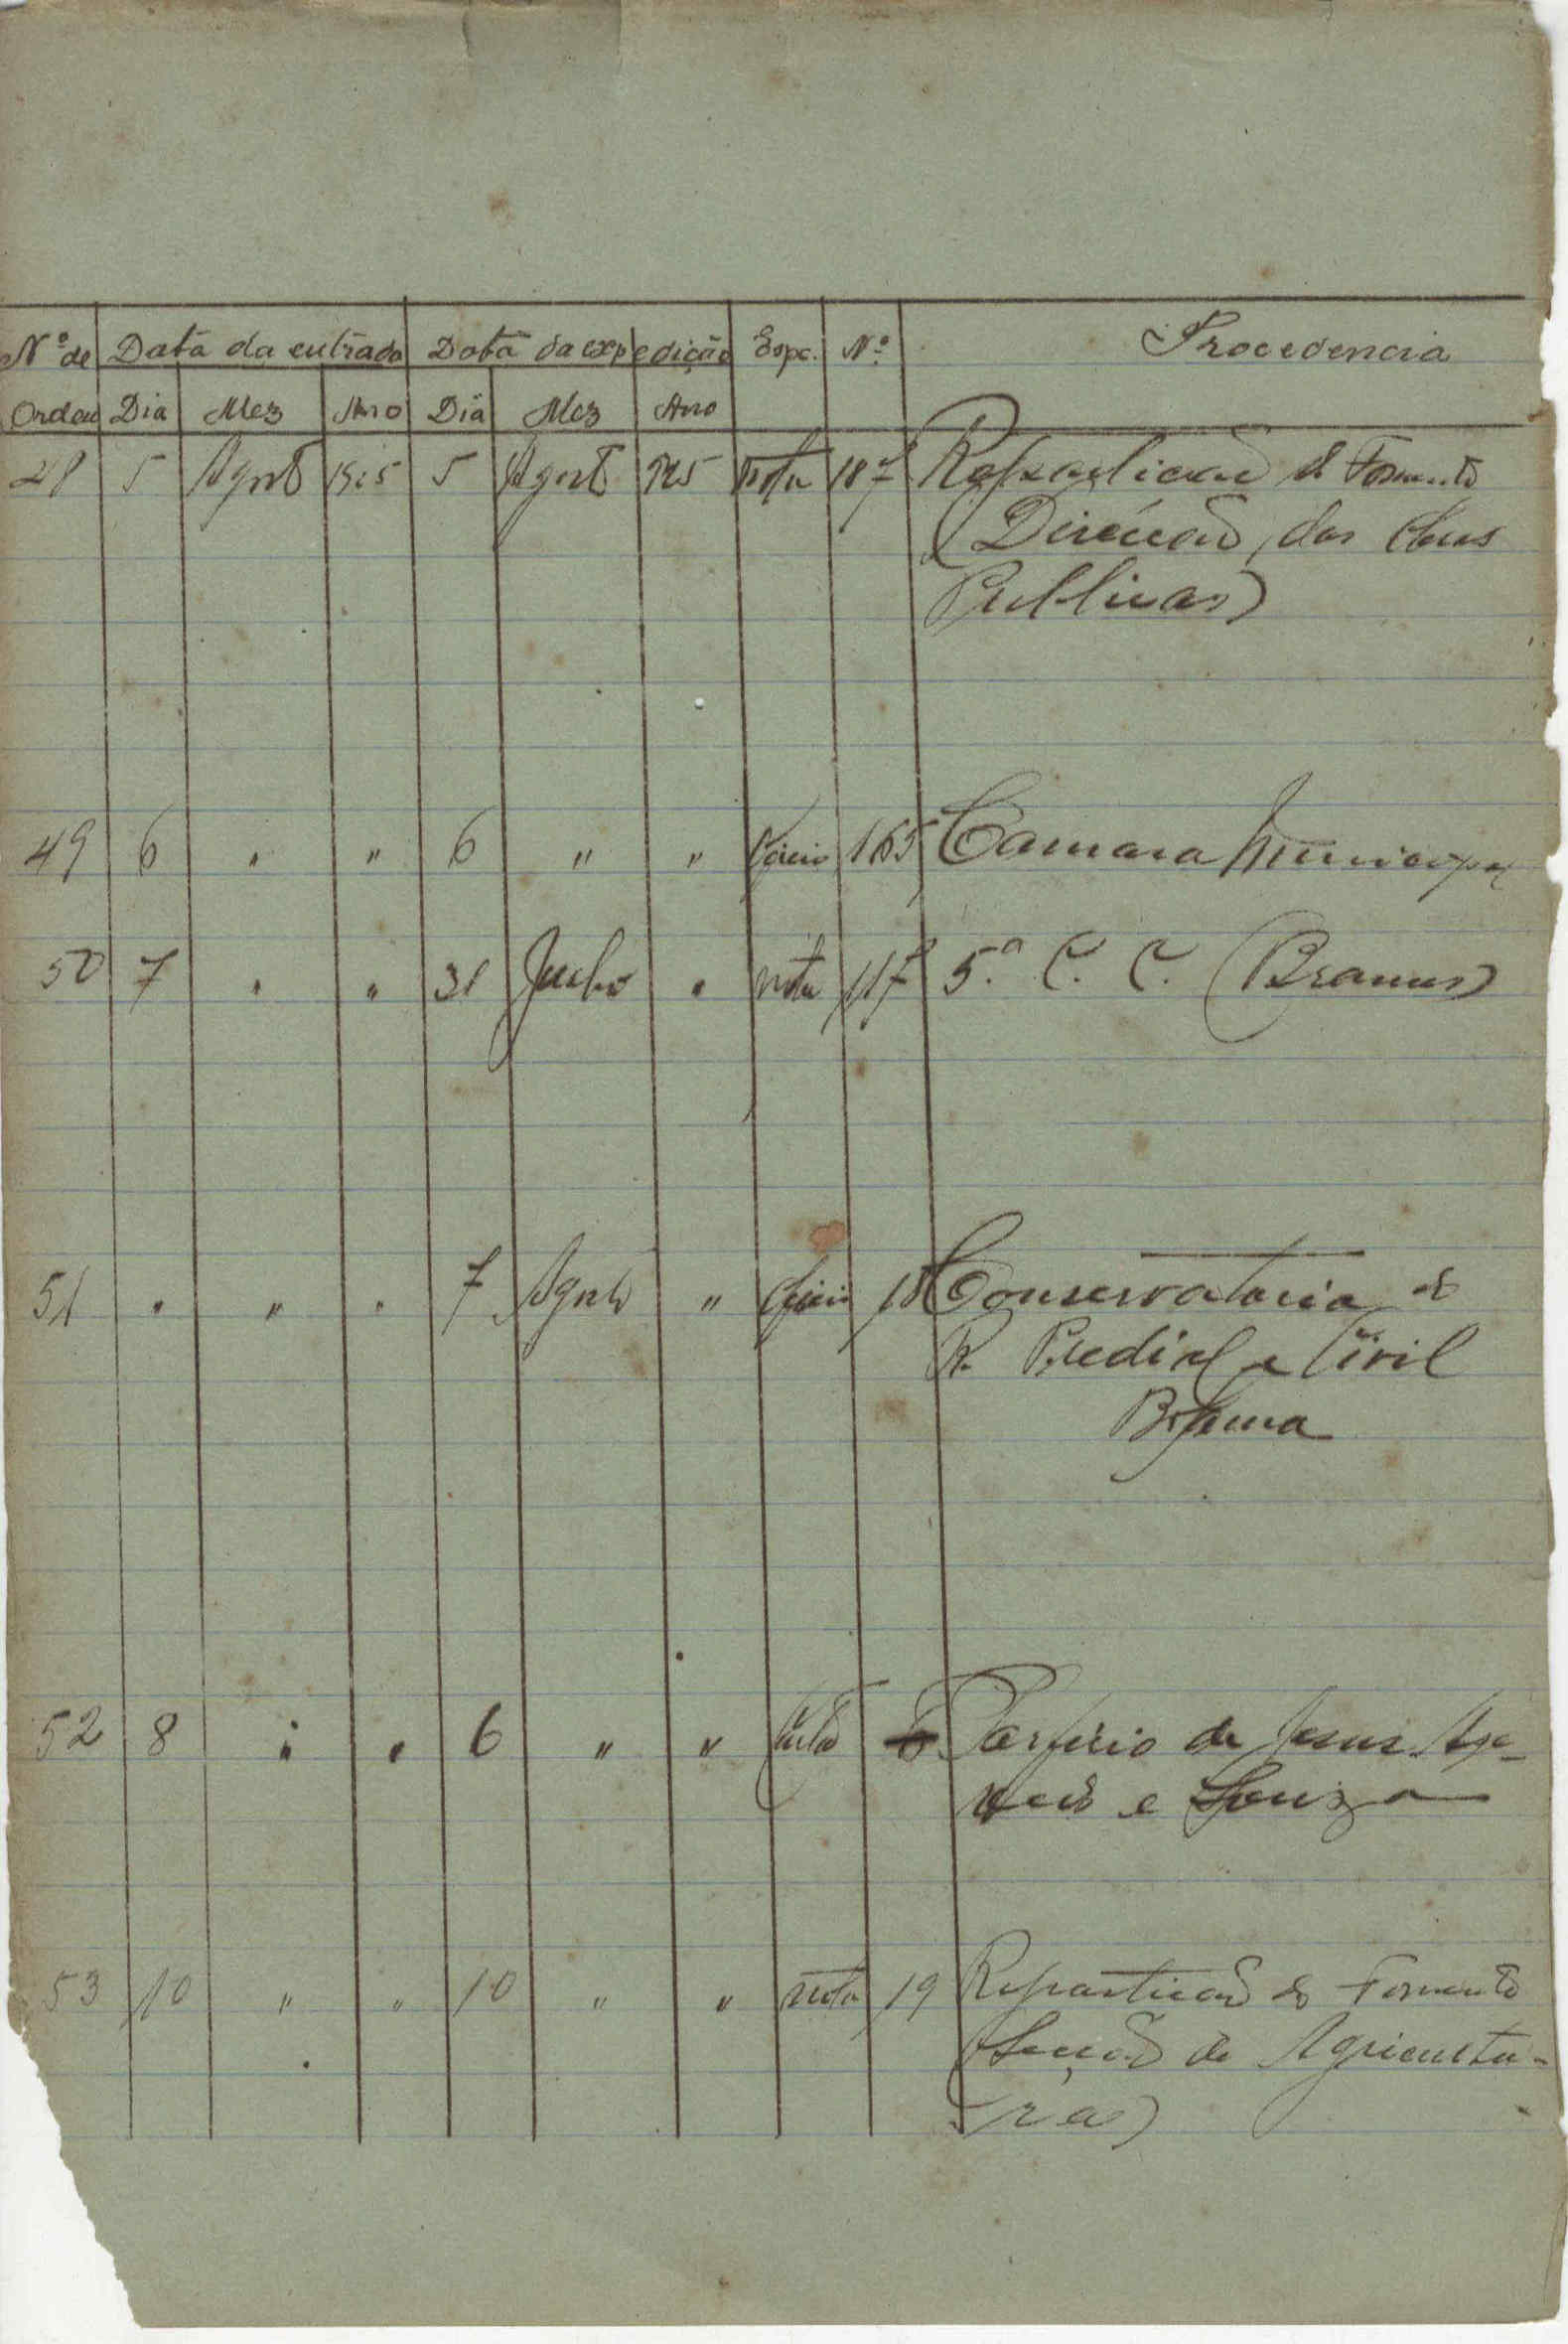 Nº de Data da entrada Data da expedição Espc. Nº Procedencia
Ordem Dia Mez Ano Dia Mez Ano
48 5 Agosto 1925 5 Agosto 925 Nota 187 Repartição de Fomento
(Direcção das Obras
Publicas)
49 6 " " 6 " " Oficio 165 Camara Municipal
50 7 " " 31 Julho " nota 117 5.ª C. C. (Brames)
51 " " " 7 Agosto " Oficio 18 Conservatoria do
R. Predial e Civil
Bolama
52 8 " " 6 " " Porfirio de Jesus
e Souza
53 10 " " 10 " " nota 19 Repartição do Fomento
(Secção de Agricultu-
ra)